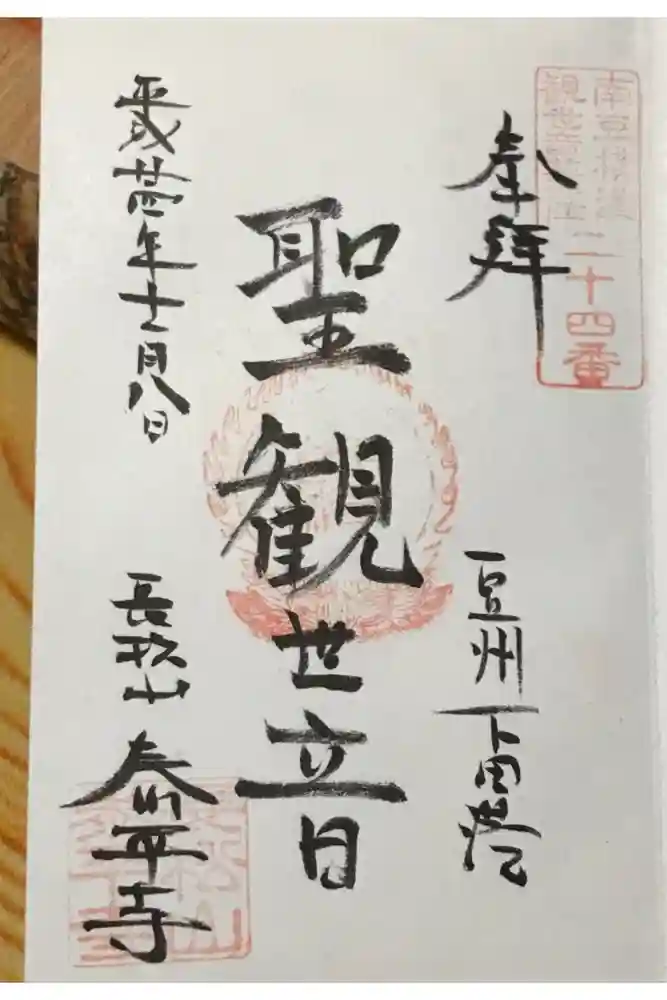 南豆横道
観世音霊場
二十四番
奉拝
豆州下田港
聖観世音
平成廿四年十一月八日
長松山泰平寺